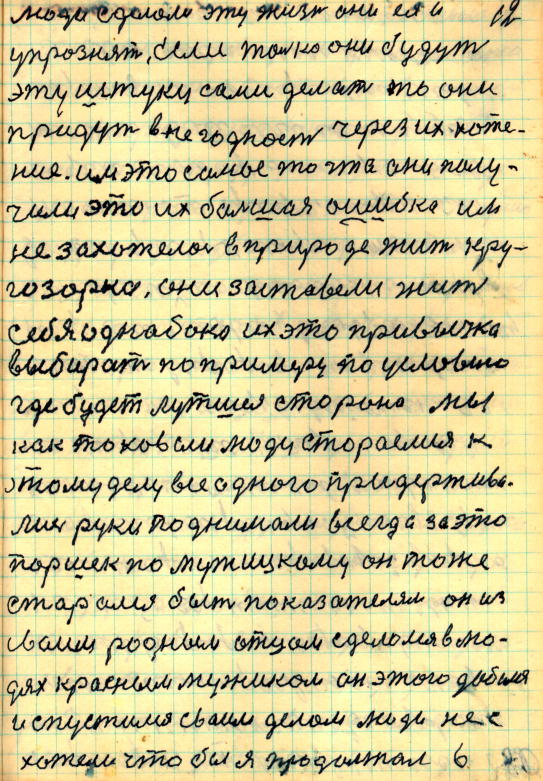 люди сделали эту жизн они ея и 12
упрознят, если толко они будут
эту штуку сами делат то они
придут в негодност через их хоте-
ние. им это самое то что они полу-
чили это их балшая ошибка им
не захотелос в природе жит кру-
гозорка, они заставели жит
себя однабоко их это привычка
выбират по примеру по условию
где будет лутшея сторона мы
как таковыи люди стораемия к
этому делу все одного придержива-
лися руки поднимали всегда за это
поршек по мужицкому он тоже
старался быт показателям он из
сваим родным отцом сделомя в лю-
дях красным мужиком он этого добился
и спустился сваим делом люди не с
хотели что бы я продолжал 6